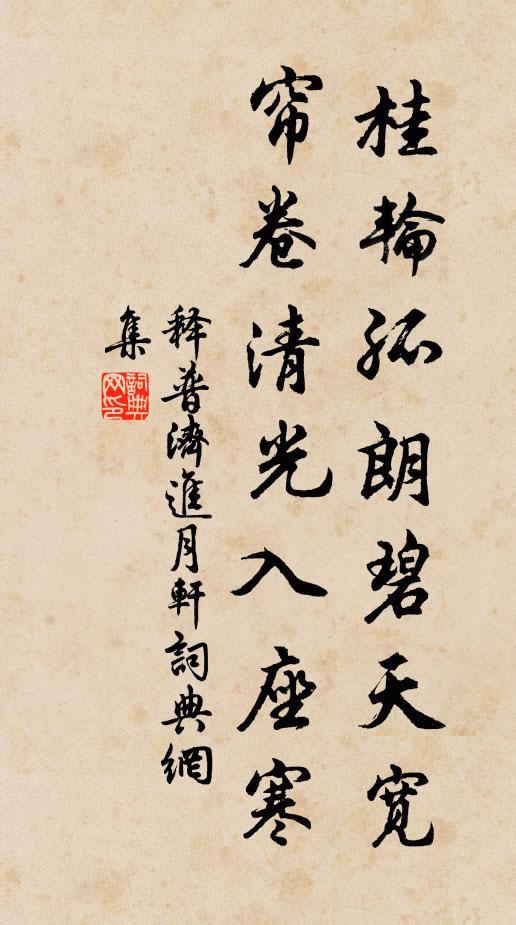 桂輪孤朗碧天寬
帘卷清光入座寒
释普濟進月軒詞典網
集
詞典網印